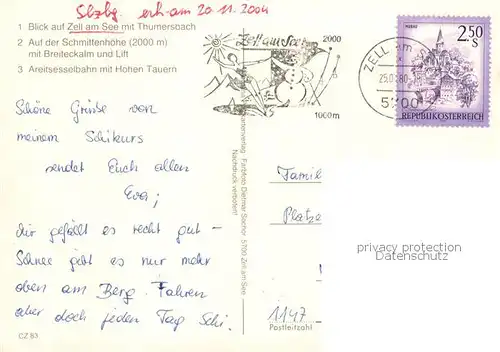 Slzbg. erh. am 20.11.2004
1 Blick auf Zell am See mit Thumersbach
2 Auf der Schmittenhöhe (2000 m)
mit Breiteckalm und Lift
3 Areitsesselbahn mit Hohen Tauern
Zell am See
2000
1000 m
ZELL am
5700
MURAU
2.50 S
REPUBLIK ÖSTERREICH
Schöne Grüße von
meinem Schikurs
sendet Euch allen
Eva;
Mir gefällt es recht gut -
Schnee gibt es nur mehr
oben am Berg. Fahren
aber doch jeden Tag Schi.
CZ 83
Kartenverlag Farbfoto Dietmar Sochor 5700 Zell am See
Nachdruck verboten!
Famil
Platze
privacy protection
Datenschutz
1147
Postleitzahl